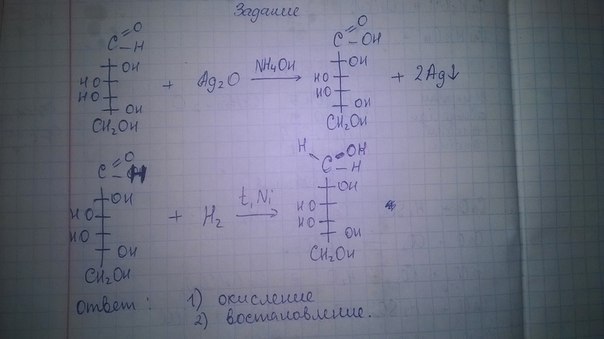 Задание
C=O
–H
OH
HO
HO
OH
CH₂OH
+ Ag₂O NH₄OH → C=O
–OH
OH
HO
HO
OH
CH₂OH
+ 2Ag↓
C=O
OH
HO
HO
OH
CH₂OH
+ H₂ t, Ni → H C–OH
–H
OH
HO
HO
OH
CH₂OH
ответ: 1) окисление
2) востановление.